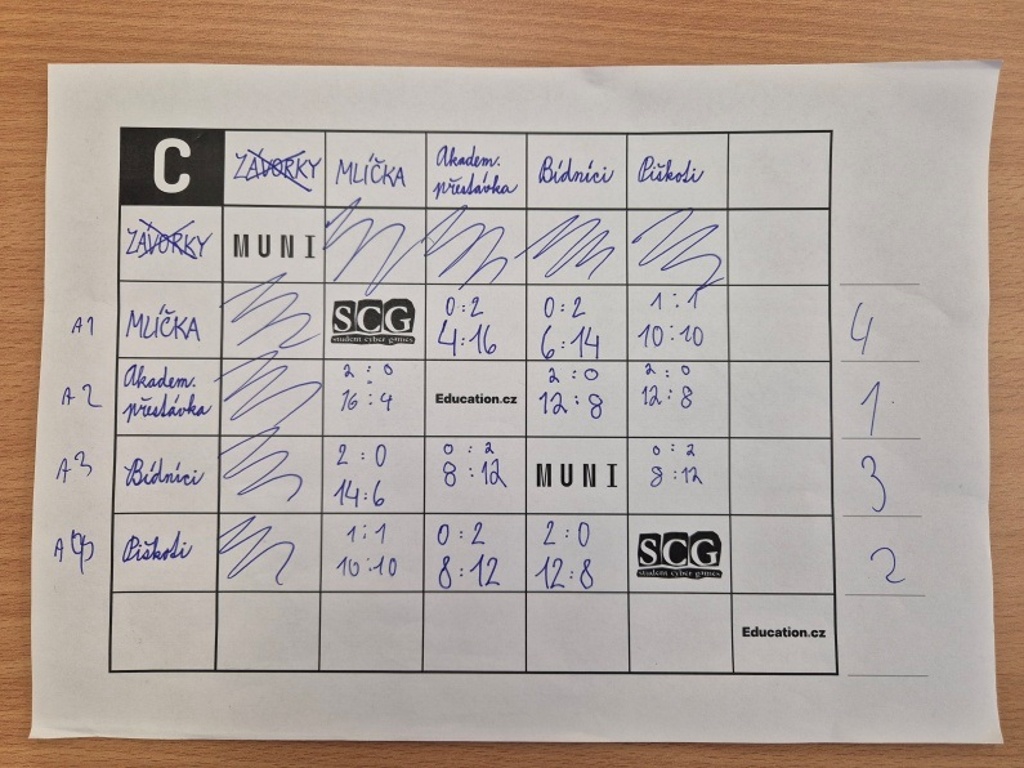 C ZÁVORKY MLÍČKA Akadem. přestávka Bídníci Piškoti
ZÁVORKY MUNI
A1 MLÍČKA SCG student cyber games 0:2 4:16 0:2 6:14 1:1 10:10 4
A2 Akadem. přestávka 2:0 16:4 Education.cz 2:0 12:8 2:0 12:8 1
A3 Bídníci 2:0 14:6 0:2 8:12 MUNI 0:2 8:12 3
A4 Piškoti 1:1 10:10 0:2 8:12 2:0 12:8 SCG student cyber games 2
Education.cz